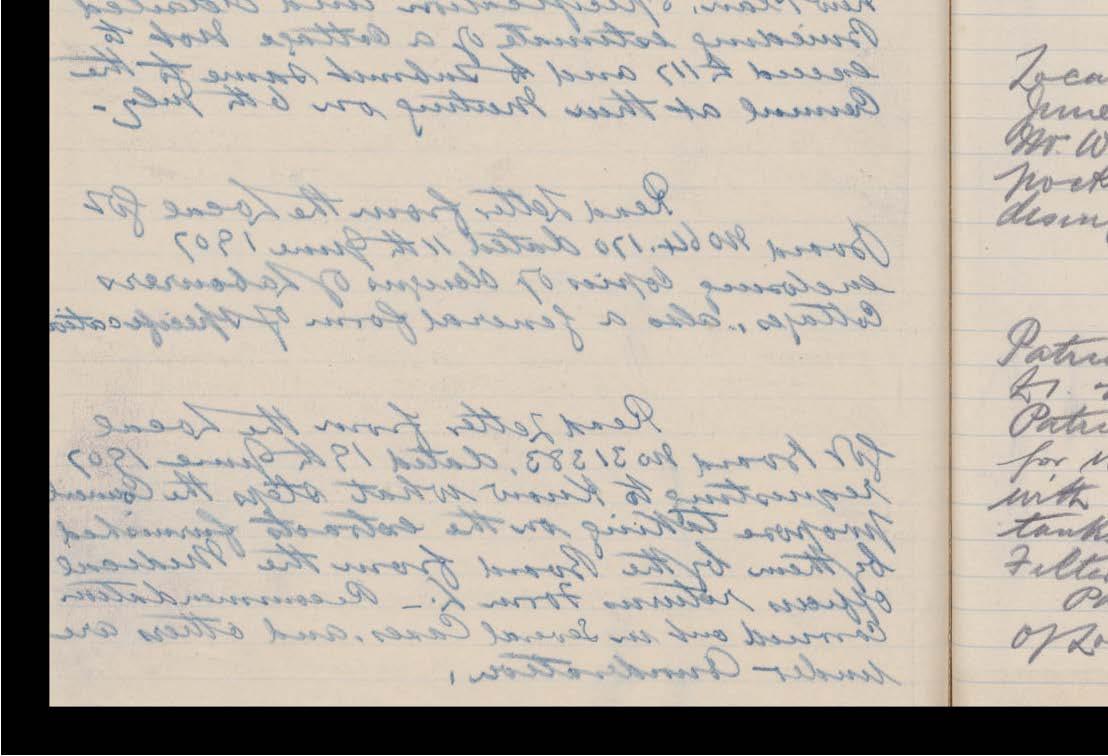 new Plan, Specification and detailed
building estimate of a cottage not to
exceed £117 and to submit same to the
Council at their Meeting on 6th July -
Read Letter from the Local Govt
Board No 64.170 dated 11th June 1907
enclosing copies of designs of Labourers
Cottages, also a general form of specification
Read Letter from the Local
Govt Board No 31383, dated 19th June 1907
requesting to know what steps the Council
propose taking on the extracts furnished
by them by the Board from the Medical
Officers returns Form -: Recommendation
Carried out in several Cases, and others are
under Consideration.
Loca
June
Mr. W
Patri
Patri
for
with
tank
Filte
of Lo